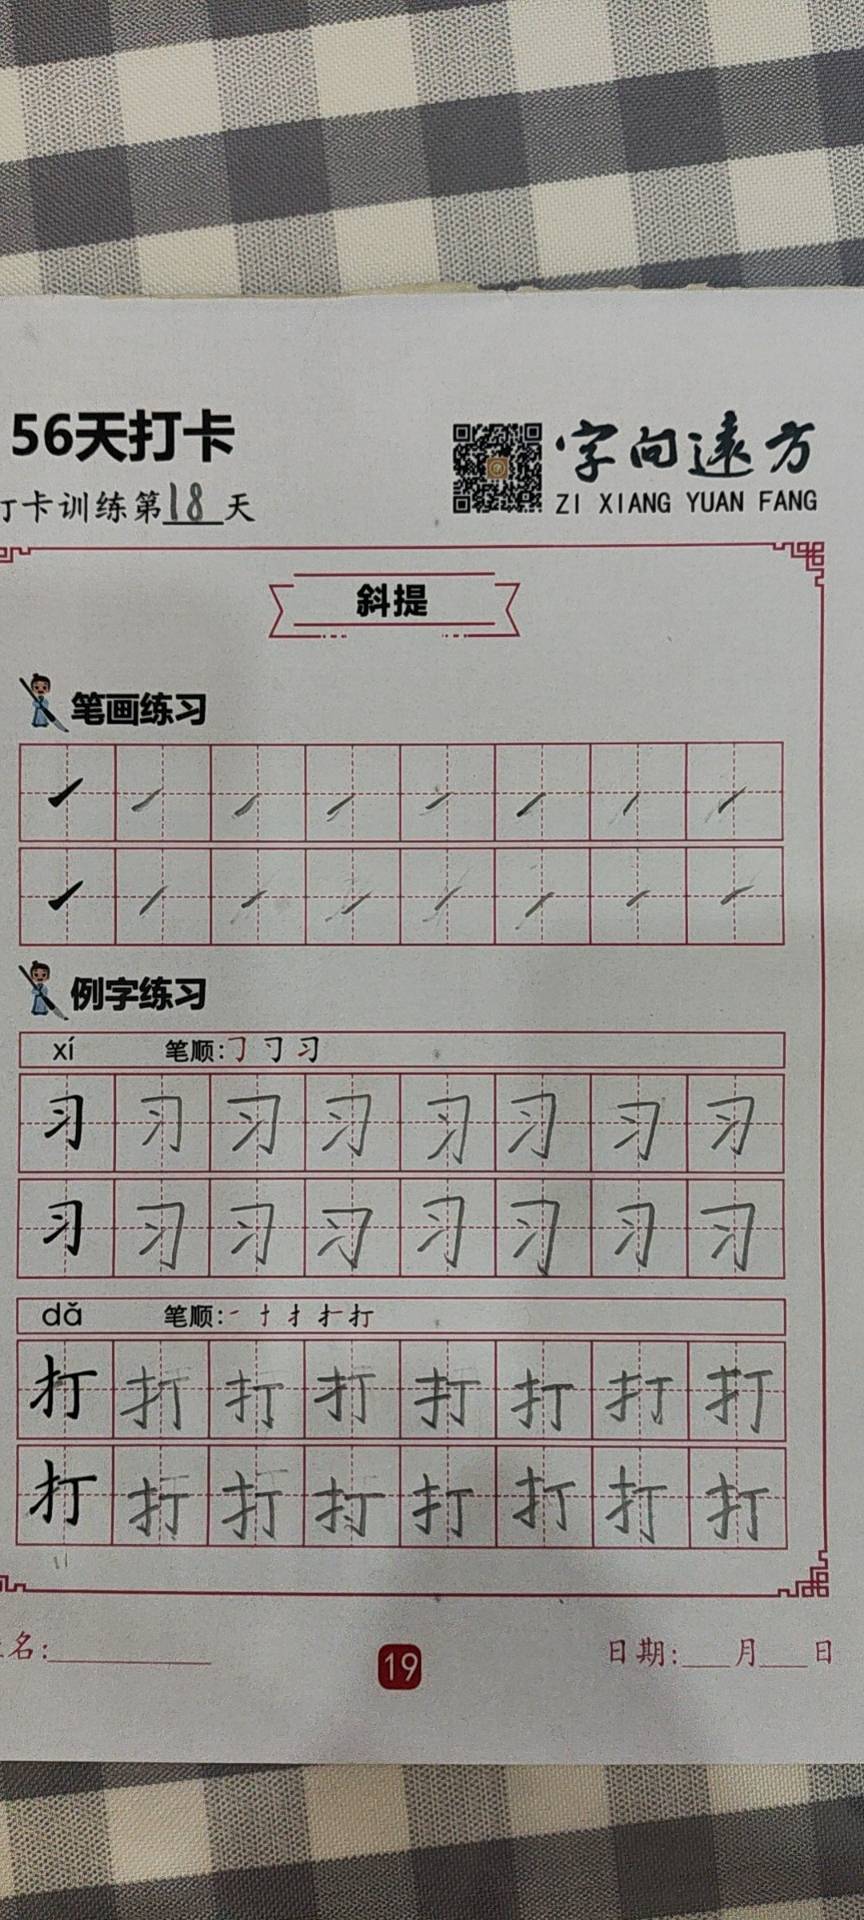 56天打卡
打卡训练第18天
字向远方
ZI XIANG YUAN FANG
斜提
笔画练习
例字练习
xí 笔顺:㇆ 习
习 习 习 习 习 习 习 习
习 习 习 习 习 习 习 习
dǎ 笔顺:一 十 扌 打
打 打 打 打 打 打 打 打
打 打 打 打 打 打 打 打
名:
19
日期: 月 日